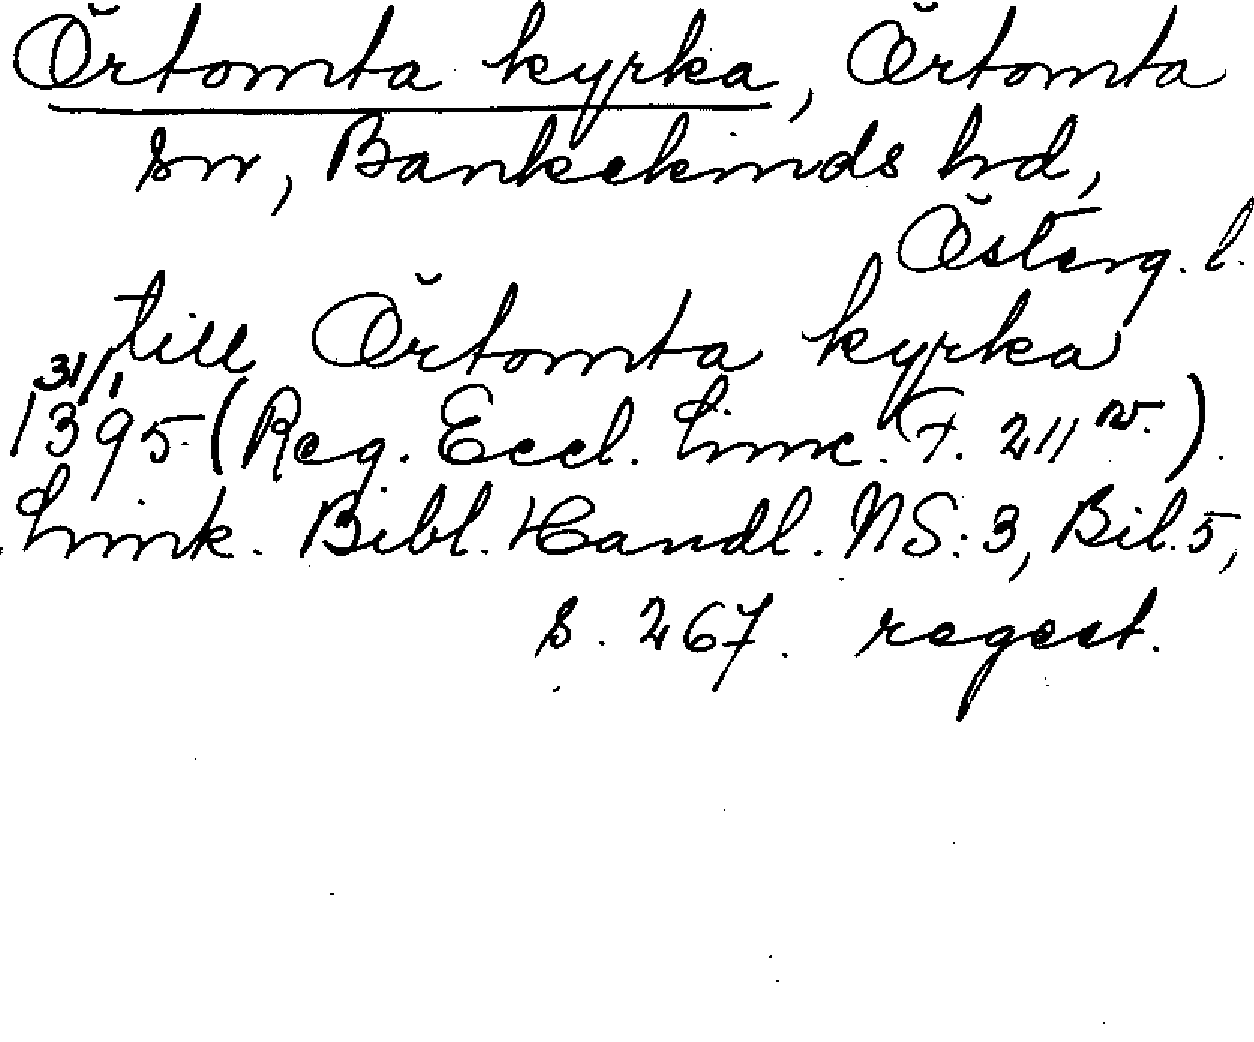 Örtomta kyrka, Örtomta
sn, Bankekinds hd,
Österg. l.
till Örtomta kyrka
31/1
1395 (Reg. Eccl. Linc. F. 211 v.)
Link. Bibl. Handl. NS: 3, Bil. 5,
s. 267. regest.